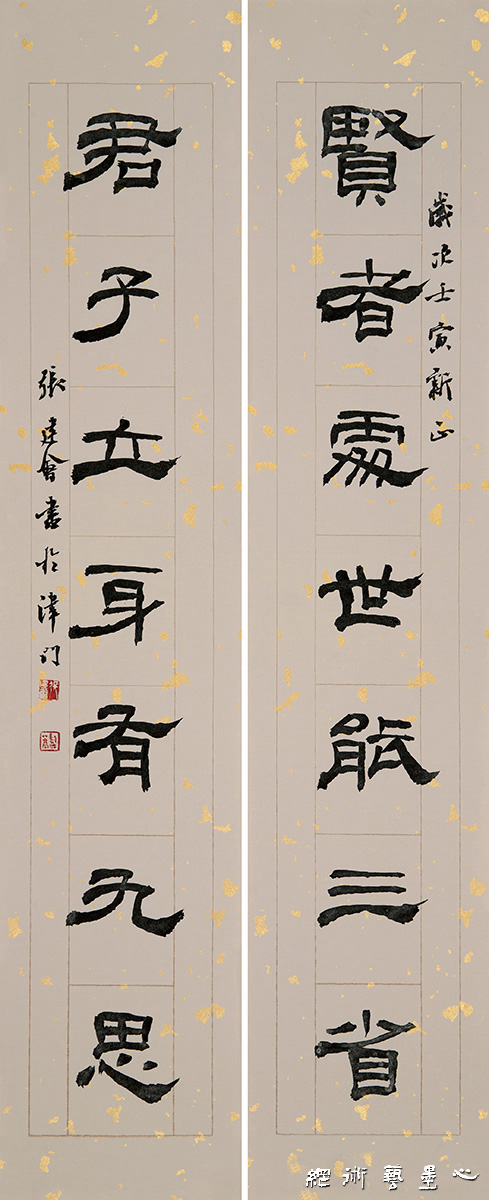 賢者處世能三省
歲次壬寅新正
君子立身有九思
張建會書於津門
心墨藝術網